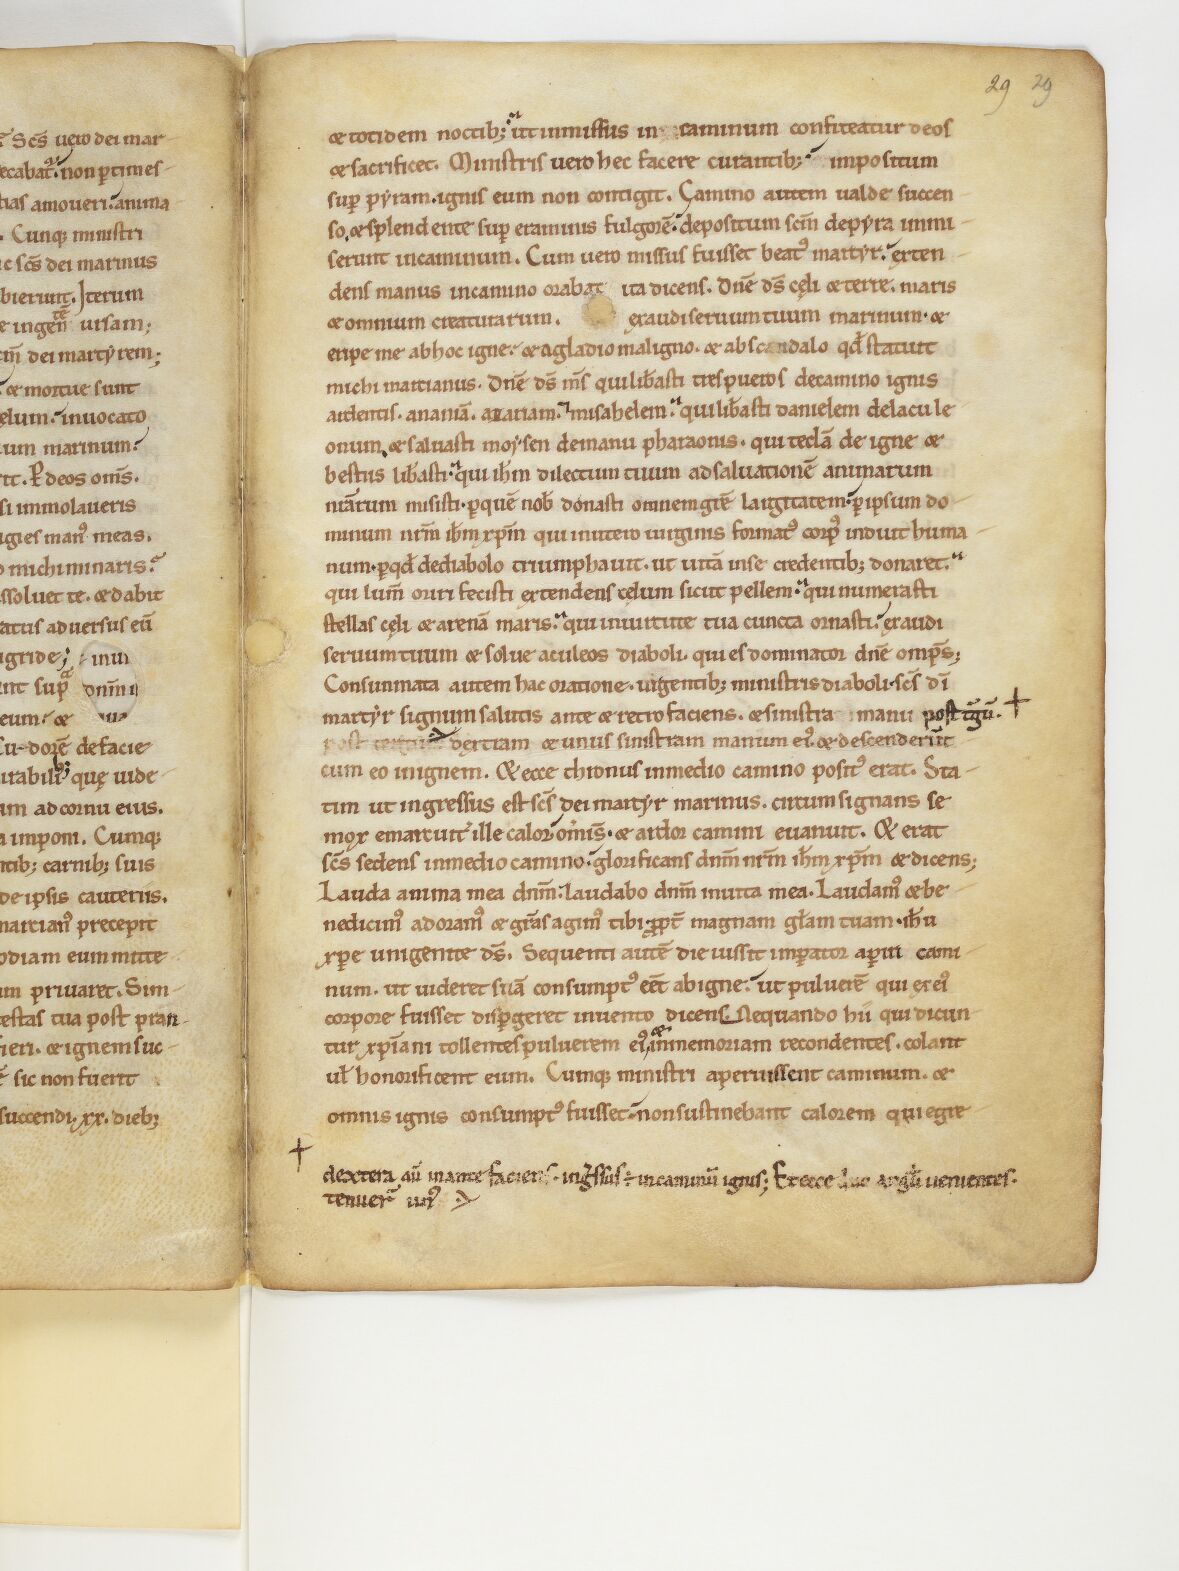 Scs̄ uero dei mar
ecabat᷑. non ꝑtimes
tias amoueri. anima
. Cunq; ministri
c scs̄ dei marinus
bierunt. Iterum
e ingentē uisam;
cm̄ dei martyrem;
. & mortue sunt
elum. inuocato
um marinum.
it. R̄ deos oms̄.
si immolaueris
ugies manꝰ meas.
michi minaris.
ssoluet te. & dabit
atus aduersus eū
igride;
nt sup̄ dnm̄
eum. &
de facie
irabilib; quę uide
am ad cornu eius.
a imponi. Cumq;
ntib; carnib; suis
de ipsis cauteriis.
marcianꝰ precepit
odiam eum mitte
um priuaret. Sim
estas tua post pran
ieri. & ignem suc
sic non fuerit
succendi. xx. dieb;
29 29
& totidem noctib; ut inmissus in caminum confiteatur deos
& sacrificet. Ministris uero hec facere curantib; impositum
sup̄ pyram. ignis eum non contigit. Camino autem ualde succen
so, & splendente sup̄ eraminis fulgorē. depositum scm̄ de pyra inmi
serunt in caminum. Cum uero missus fuisset beatꝰ martyr. exten
dens manus in camino orabat ita dicens. Dnē ds̄ cęli & terre. maris
& omnium creaturarum. exaudi seruum tuum marinum. &
eripe me ab hoc igne. & a gladio maligno. & ab scandalo qd̄ statuit
michi marcianus. Dnē ds̄ ms̄ qui lib̄asti tres pueros de camino ignis
ardentis. ananiā. azariam. ⁊ misahelem. qui lib̄asti danielem de lacu le
onum, & saluasti moysen de manu pharaonis. qui teclā de igne &
bestiis lib̄asti. qui ih̄m dilectum tuum ad saluationē animarum
nr̄arum misisti. ꝑ quē nob̄ donasti omnem gr̄e largitatem. ꝑ ipsum do
minum nrm̄ ih̄m xp̄m qui in utero uirginis formatꝰ corpꝰ induit huma
num. ꝑ qd̄ de diabolo triumphauit. ut uitā in se credentib; donaret.
qui lum̄ oriri fecisti extendens cęlum sicut pellem. qui numerasti
stellas cęli & arenā maris. qui in uirtute tua cuncta ornasti. exaudi
seruum tuum & solue aculeos diaboli. qui es dominator dnē omp̄s;
Consummata autem hac oratione. urgentib; ministris diaboli. scs̄ dī
martyr signum salutis ante & retro faciens. & sinistra manu post tḡū. +
dextram & unus sinistram manum eiꝰ. & descenderūt
cum eo in ignem. Et ecce thronus in medio camino positꝰ erat. Sta
tim ut ingressus est scs̄ dei martyr marinus. circum signans se
mox emarcuit ille calor om̄is. & ardor camini euanuit. Et erat
scs̄ sedens in medio camino. glorificans dnm̄ nrm̄ ih̄m xp̄m & dicens;
Lauda anima mea dnm̄. laudabo dnm̄ in uita mea. Laudamꝰ & be
nedicimꝰ adoramꝰ & grās agimꝰ tibi. ꝓpt̄ magnam gl̄am tuam. ih̄u
xp̄e unigenite ds̄. Sequenti autē die iussit imꝑator aꝑiri cami
num. ut uideret si iā consumptꝰ eēt ab igne. ut puluerē qui ex eiꝰ
corpore fuisset disꝑgeret in uento dicens. Ne quando hii qui dicun
tur xp̄iani tollentes puluerem eiꝰ, & in memoriam recondentes. colant
ul̄ honorificent eum. Cumq; ministri aperuissent caminum. &
omnis ignis consumptꝰ fuisset. non sustinebant calorem qui egre
+
dextera aū in ante faciens. ingr̄ssus ÷ in caminū ignis; Et ecce duo angl̄i uenientes.
tenuer̄